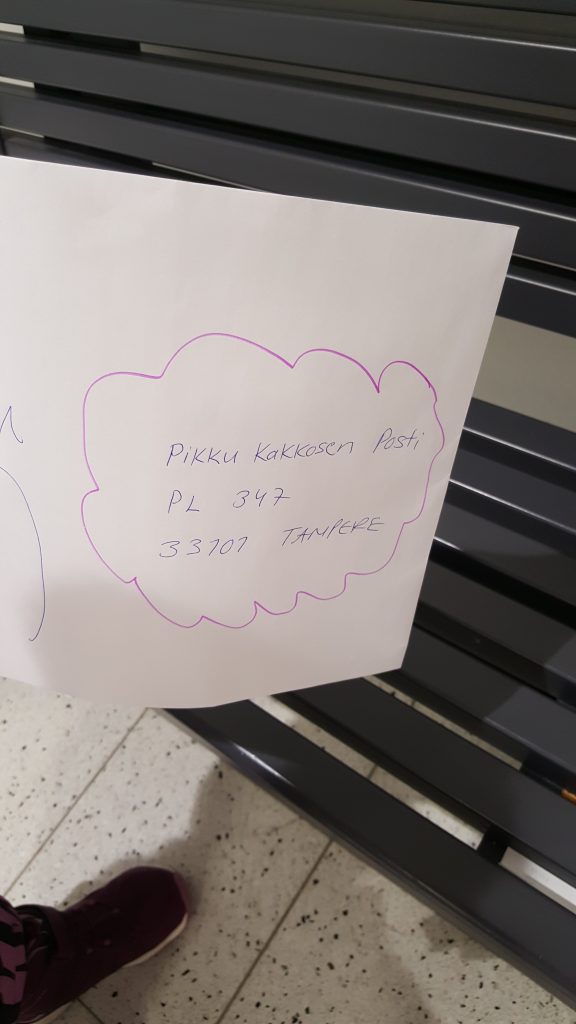 Pikku Kakkosen Posti
PL 347
33101 TAMPERE